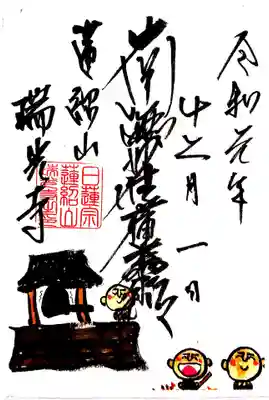 令和元年
十二月一日
南無妙法蓮華経
蓮紹山
瑞光寺
日蓮宗
蓮紹山